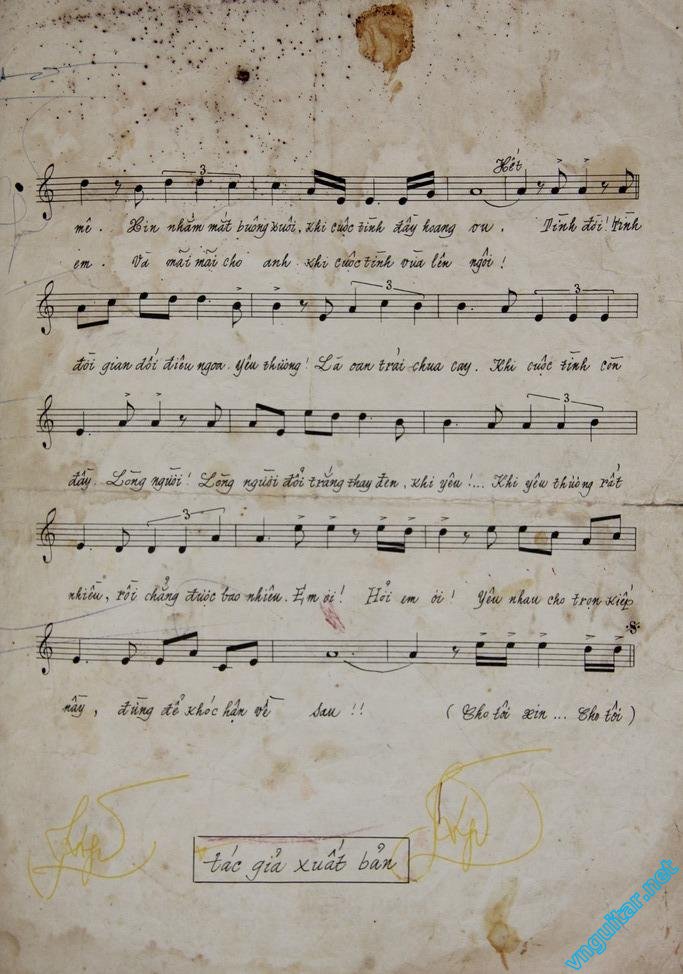 Hết
3
mê. Xin nhắm mắt buông xuôi, khi cuộc tình đầy hoang vu. Tình đời! tình
em. Và mãi mãi cho anh khi cuộc tình vừa lên ngôi!
3
đời gian dối điêu ngoa. Yêu thương! Là oan trái chua cay. Khi cuộc tình còn
3
đầy. Lòng người! Lòng người đổi trắng thay đen, khi yêu!... Khi yêu thường rất
3
nhiều, rồi chẳng được bao nhiêu. Em ơi! Hỡi em ơi! Yêu nhau cho trọn kiếp
nầy, đừng để khóc hận về sau!! (Cho tôi xin... Cho tôi)
tác giả xuất bản
vnguitar.net